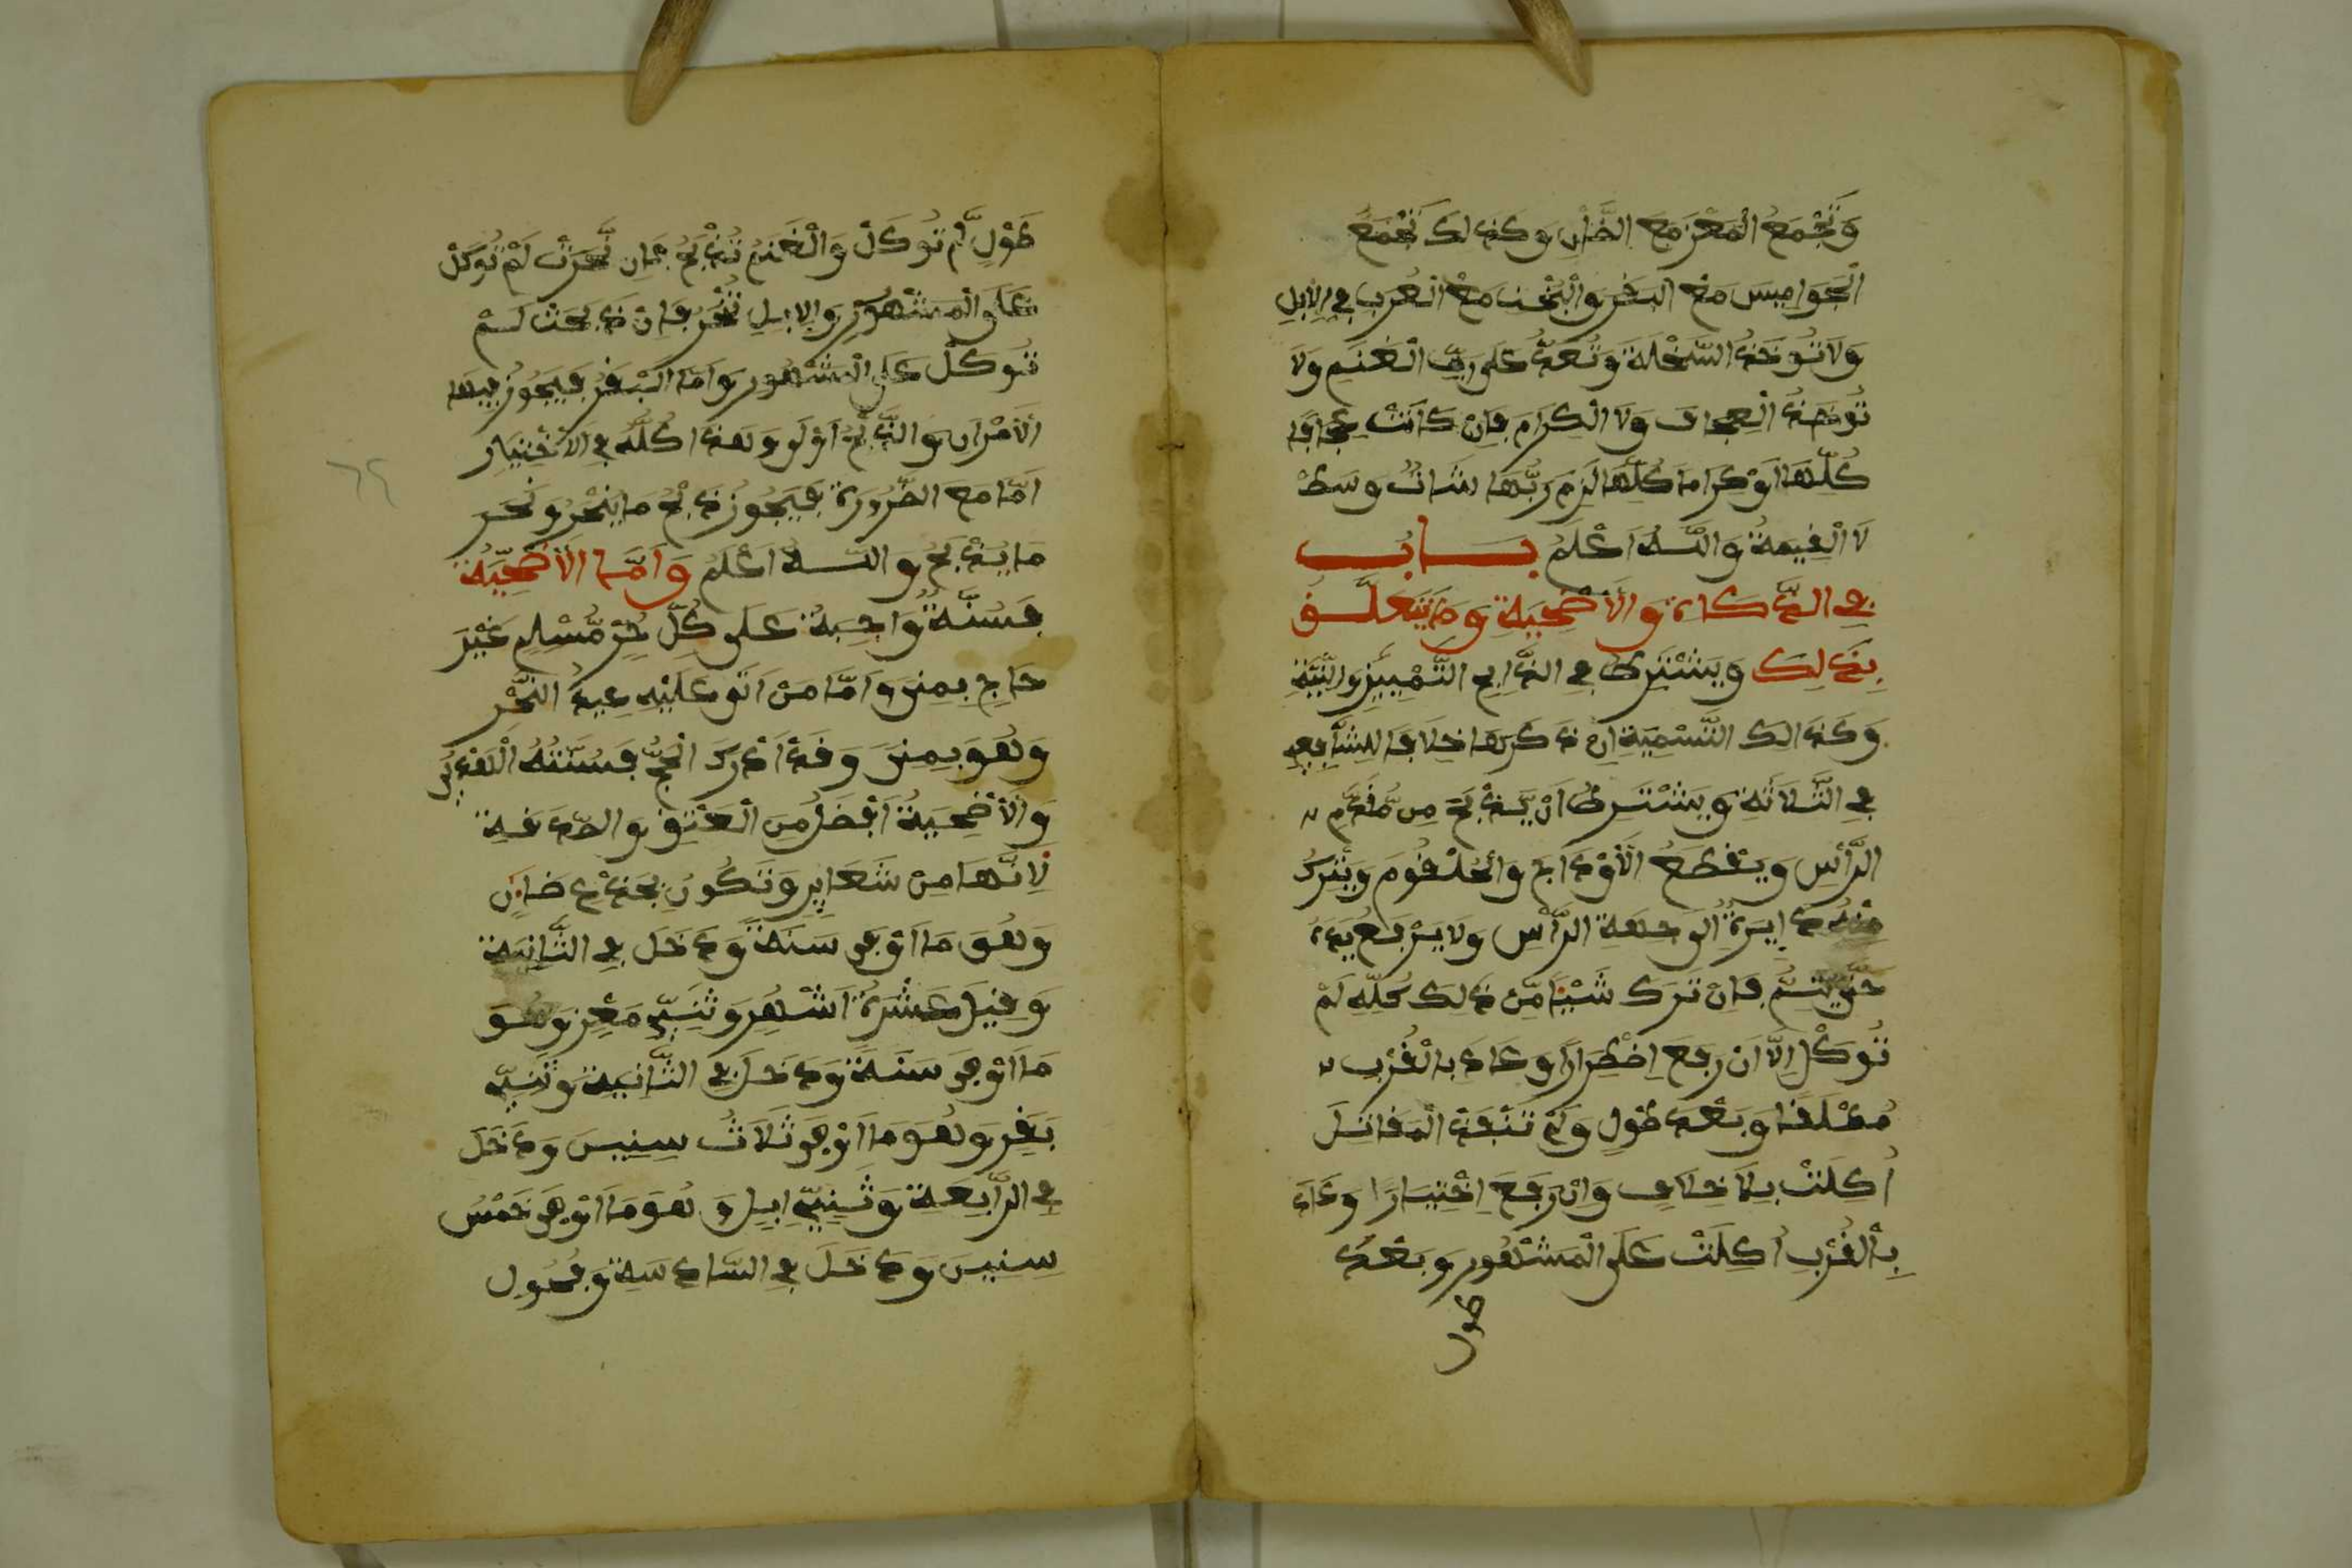 وَتُجْمَعُ الْمَعْزُ مَعَ الضَّأْنِ وَكَذَلِكَ تُجْمَعُ
الْجَوَامِيسَ مَعَ الْبَقَرِ وَالْبُخْتِ مَعَ الْعُرْبِ فِي الْإِبِلِ
وَلَا تُوخَذُ السَّخْلَةَ وَتُعَدُّ عَلَى رَبِّ الْغَنَمِ وَلَا
تُوخَذُ الْعِجَافَ وَلَا الْكِرَامَ فَإِنْ كَانَتْ عِجَافًا
كُلُّهَا أَوْ كِرَامًا كُلُّهَا لَزِمَ رَبَّهَا شَاتٌ وَسَطٌ
لَا الْقِيمَةُ وَاللَّهُ أَعْلَمُ بَابٌ
فِي الذَّكَاةِ وَالْأُضْحِيَةِ وَمَا يَتَعَلَّقُ
بِذَلِكَ وَيَشْتَرِطُ فِي الذَّابِحِ التَّمْيِيزُ وَالنِّيَّةُ
وَكَذَالِكَ التَّسْمِيَةُ إِنْ ذَكَرَهَا خِلَافًا لِلشَّافِعِي
فِي الثَّلَاثَةِ وَيَشْتَرِطُ أَنْ يَّذْبَحَ مِن مُّقَدَّمِ
الرَّأْسِ وَيَقْطَعُ الْأَوْدَاجَ وَالْحُلْقُومَ وَيَتْرُكُ
مِنْهُ دَايِرَةٌ لِوَجْهَةِ الرَّأْسِ وَلَا يَرْفَعُ يَدَهُ
حَتَّى يَتِمَّ فَإِنْ تَرَكَ شَيْئًا مِّنْ ذَلِكَ كُلِّهِ لَمْ
تُوكَلْ إِلَّا أَنْ رَفَعَ اِضْطِرَارًا وَعَادَ بِالْقُرْبِ
مُطْلَقًا وَبَعْدَ طُولٍ وَلَمْ تَنْفَذْ الْمَقَاتِلَ
أُكِلَتْ بِلَا خِلَافٍ وَإِنْ رَفَعَ اِخْتِيَارًا وَعَادَ
بِالْقُرْبِ أُكِلَتْ عَلَى الْمَشْهُورِ وَبَعْدَ
طول
طُولٍ لَّمْ تُوكَلْ وَالْغَنَمُ تُذْبَحُ فَإِن نُّحِرَتْ لَمْ تُوكَلْ
عَلَى الْمَشْهُورِ وَالْإِبِلِ تُنْحَرُ فَإِنْ ذُبِحَتْ لَمْ
تُوكَلْ عَلَى الْمَشْهُورِ وَأَمَّا الْبَقَرُ فَيَجُوزُ فِيهَا
الْأَمْرَانِ وَالذَّبْحُ أَوْلَى وَهَذَا كُلُّهُ فِي الْاِخْتِيَارِ
أَمَّا مَعَ الضَّرُورَةِ فَيَجُوزُ ذَبْحُ مَا يُنْحَرُ وَنَحْرِ
مَا يُذْبَحُ وَاللَّهُ أَعْلَمُ وَأَمَّا الْأُضْحِيَّةُ
فَسُنَّةٌ وَاجِبَةٌ عَلَى كُلِّ حُرٍّ مُّسْلِمٍ غَيْرَ
حَاجٍّ بِمِنَى وَأَمَّا مَنْ أَتَى عَلَيْهِ عِيدُ النَّحْرِ
وَهُوَ بِمِنَى وَقَدْ أَدْرَكَ الْحَجَّ فَسُنَّتُهُ الْهَدْيُ
وَالْأُضْحِيَةُ أَفْضَلُ مِنَ الْعِتْقِ وَالصَّدَقَةِ
لِأَنَّهَا مِنْ شَعَايِرِ وَتَكُونُ بِجَذْعِ ضَانٍ
وَهُوَ مَا أَوْفَى سَنَةً وَدَخَلَ فِي الثَّانِيَةِ
وَقِيلَ عَشْرَةُ أَشْهُرٍ وَثَنِيِّ مَعْزٍ وَهُوَ
مَا أَوْفَى سَنَةً وَدَخَلَ فِي الثَّانِيَةِ وَثَنِيِّ
بَقَرٍ وَهُوَ مَا أَوْفَى ثَلَاثُ سِنِينَ وَدَخَلَ
فِي الرَّابِعَةِ وَثَنِيِّ إِبِلٍ وَهُوَ مَا أَوْفَى خَمْسُ
سِنِينَ وَدَخَلَ فِي السَّادِسَةِ وَفُحُولِ